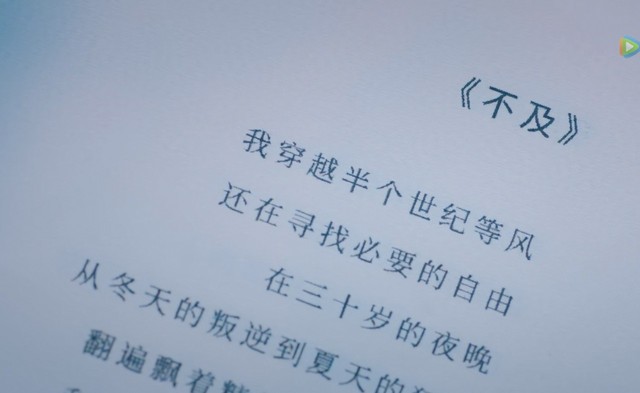 《不及》
我穿越半个世纪等风
还在寻找必要的自由
在三十岁的夜晚
从冬天的叛逆到夏天的
翻遍飘着